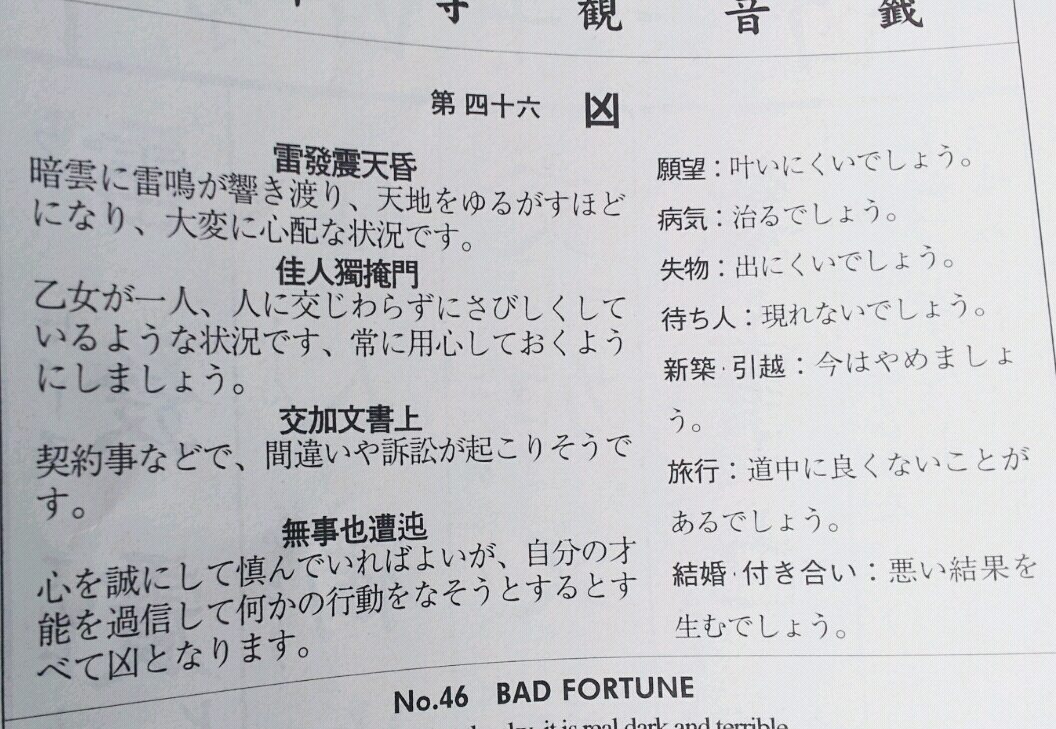 寺 観 音 籤
第四十六 凶
雷發震天昏
暗雲に雷鳴が響き渡り、天地をゆるがすほど
になり、大変に心配な状況です。
佳人獨掩門
乙女が一人、人に交じわらずにさびしくして
いるような状況です、常に用心しておくよう
にしましょう。
交加文書上
契約事などで、間違いや訴訟が起こりそうで
す。
無事也遭迍
心を誠にして慎んでいればよいが、自分の才
能を過信して何かの行動をなそうとするとす
べて凶となります。
願望：叶いにくいでしょう。
病気：治るでしょう。
失物：出にくいでしょう。
待ち人：現れないでしょう。
新築·引越：今はやめましょ
う。
旅行：道中に良くないことが
あるでしょう。
結婚·付き合い：悪い結果を
生むでしょう。
No.46 BAD FORTUNE
it is real dark and terrible